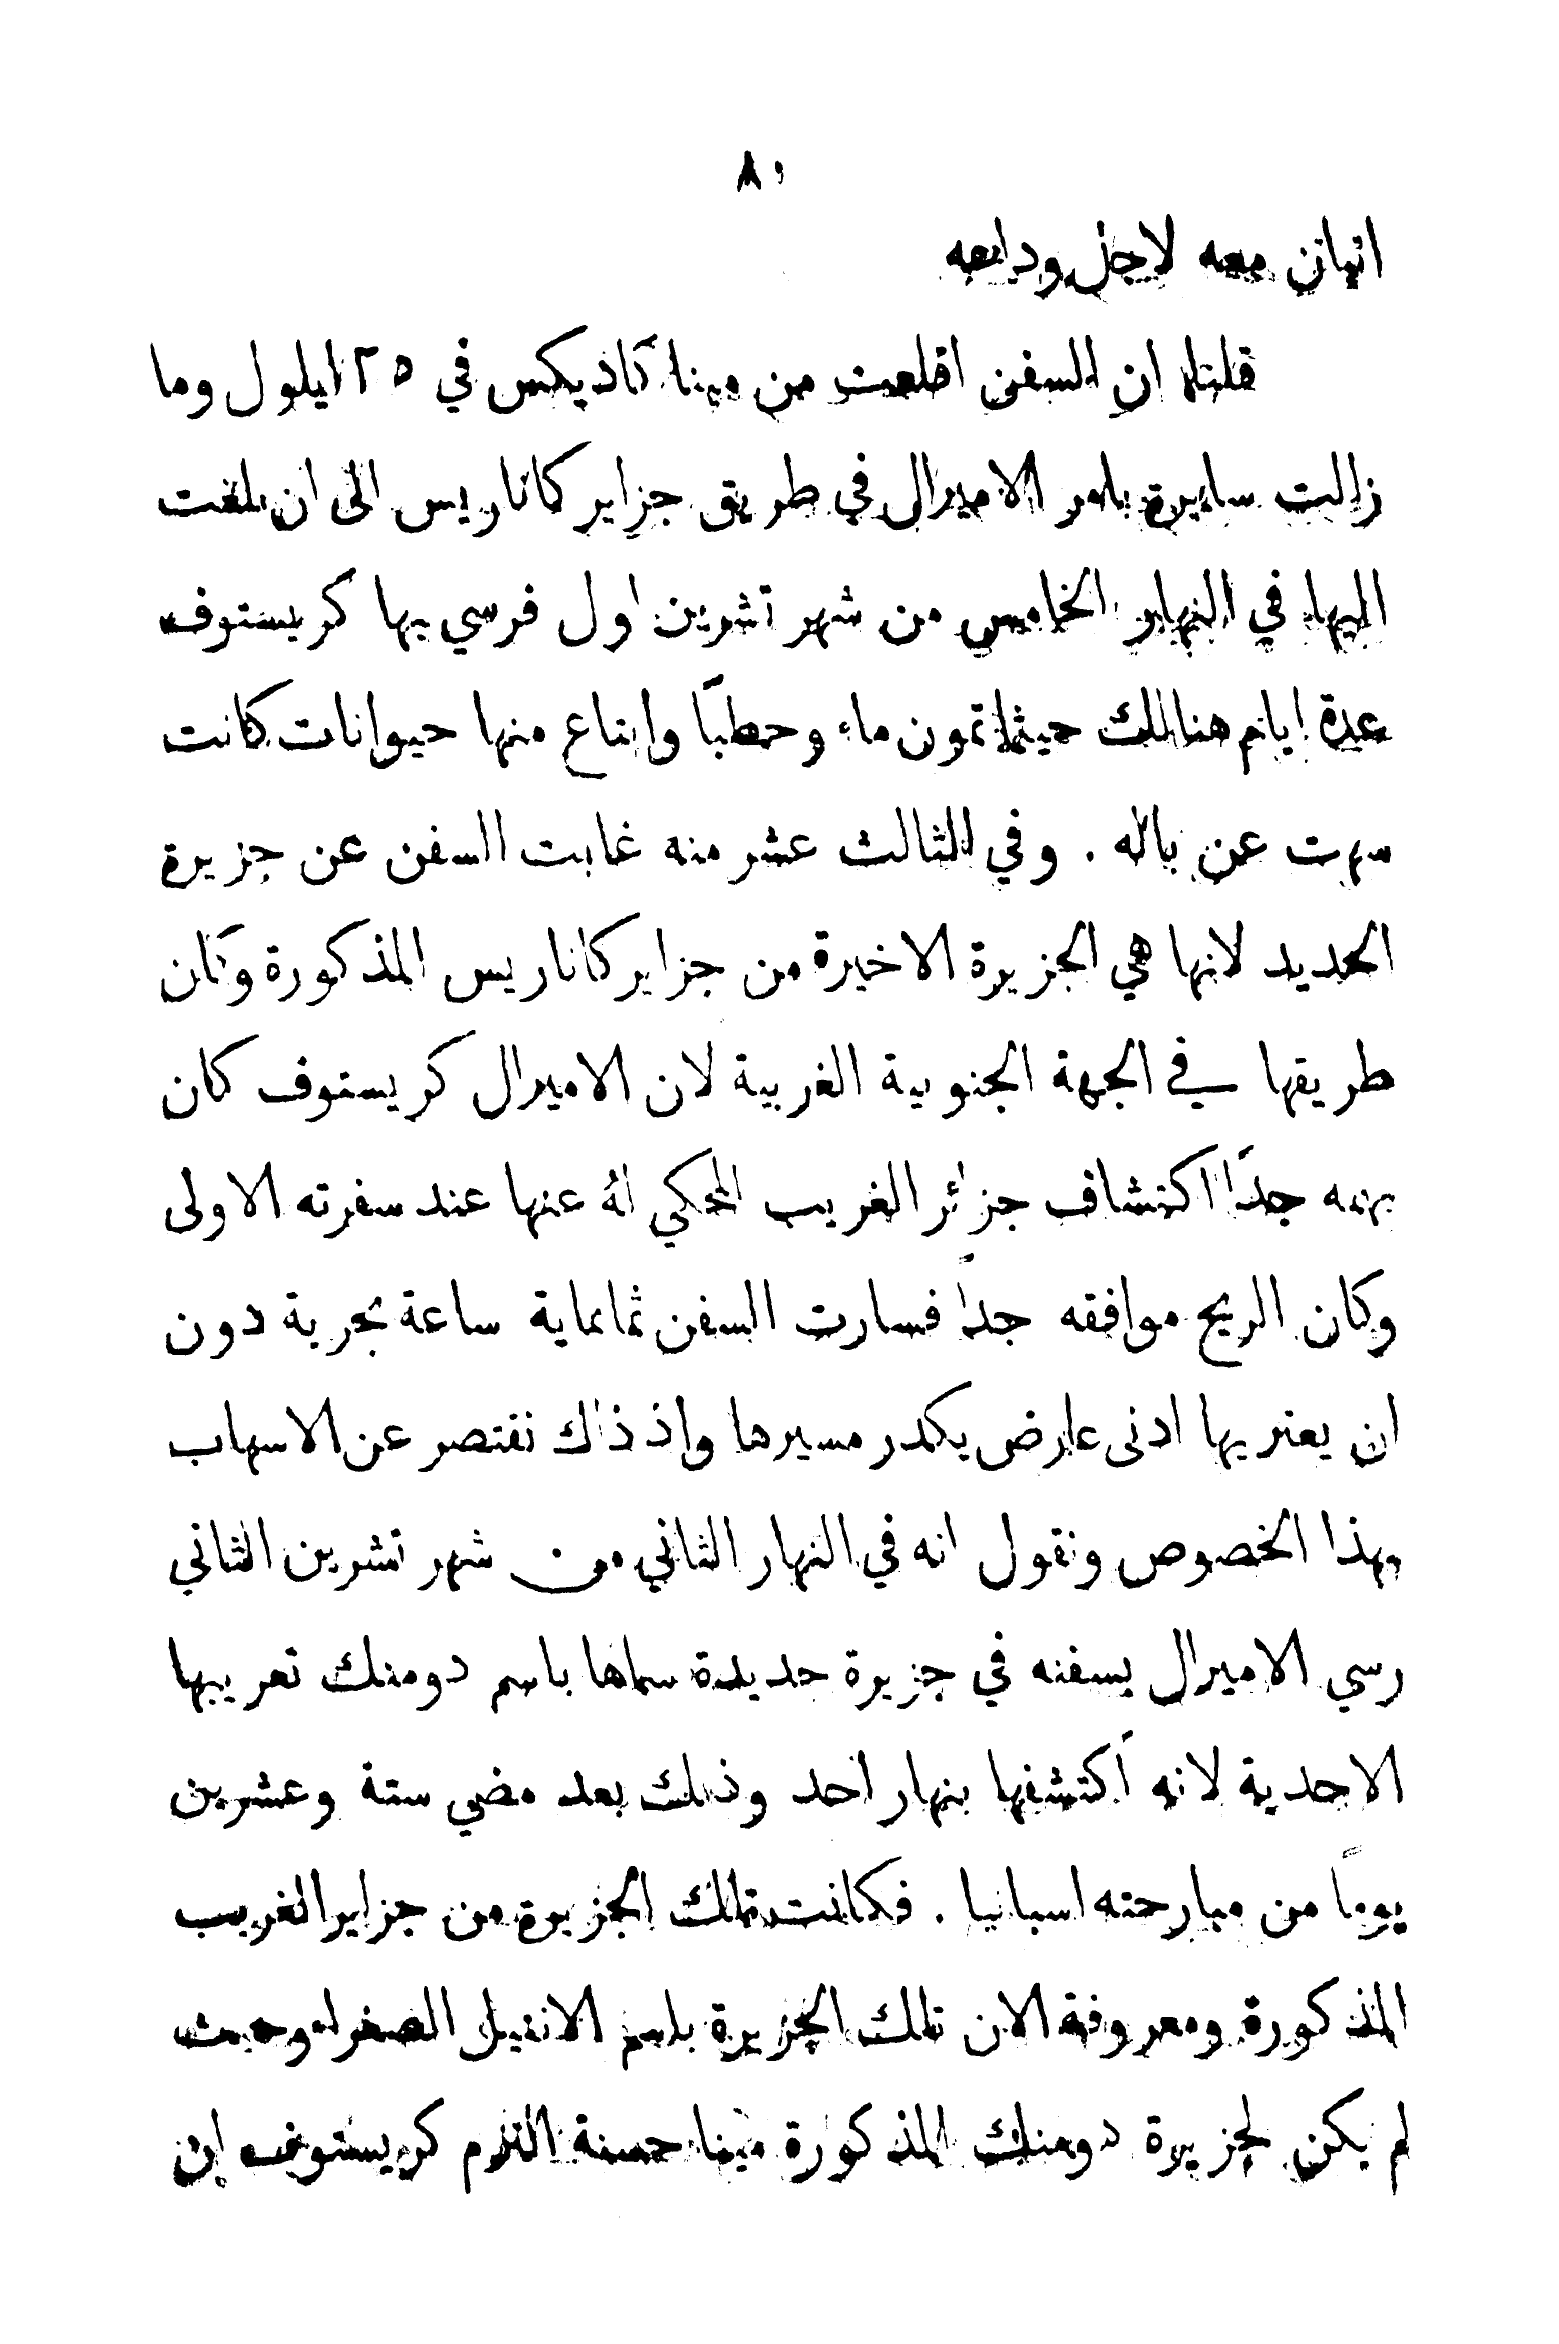 ٨٠
اتيان معه لاجل وداعه
قلنا ان السفن اقلعت من مينا كاديكس في ٢٥ ايلول وما
زالت سايرة بامر الاميرال في طريق جزاير كاناريس الى ان بلغت
اليها في النهار الخامس من شهر تشرين اول فرسي بها كريستوف
عدة ايام هنالك حيثما تمون ماء وحطبًا وابتاع منها حيوانات كانت
سهت عن باله . وفي الثالث عشر منه غابت السفن عن جزيرة
الحديد لانها هي الجزيرة الاخيرة من جزاير كاناريس المذكورة وكان
طريقها في الجهة الجنوبية الغربية لان الاميرال كريستوف كان
يهمه جدًا اكتشاف جزائر الغريب المحكي لهُ عنها عند سفرته الاولى
وكان الريح موافقه جدًا فسارت السفن ثمانماية ساعة بحرية دون
ان يعتريها ادنى عارض يكدر مسيرها واذ ذاك نقتصر عن الاسهاب
بهذا الخصوص ونقول انه في النهار الثاني من شهر تشرين الثاني
رسي الاميرال بسفنه في جزيرة جديدة سماها باسم دومنك تعريبها
الاحدية لانه اكتشفها بنهار احد وذلك بعد مضي ستة وعشرين
يومًا من مبارحته اسبانيا . فكانت تلك الجزيرة من جزاير الغريب
المذكورة ومعروفة الان تلك الجزيرة باسم الانتيل الصغراء وحيث
لم يكن لجزيرة دومنك المذكورة مينا حسنة التزم كريستوف ان